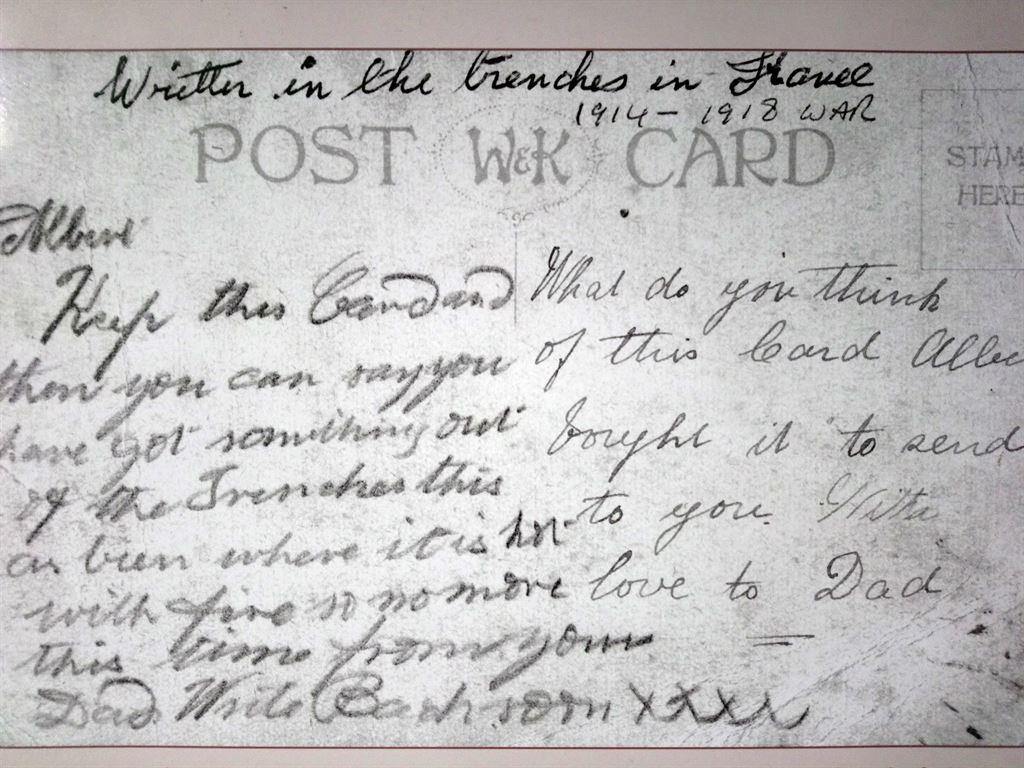 Written in the trenches in France
1914 - 1918 WAR
POST W&K CARD
STAM
HERE
Albert
Keep this Card and
then you can say you
have got something out
of the Trenches this
as bien where it is hot
with fire so no more
this time from your
Dad Write Back soon xxxx
What do you think
of this Card Albe
bought it to send
to you. With
love to Dad